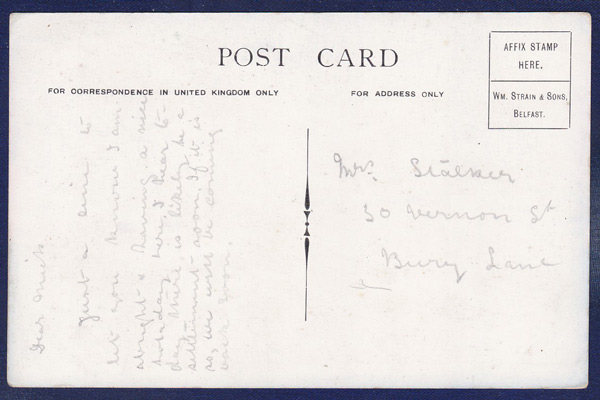 POST CARD
AFFIX STAMP
HERE.
WM. STRAIN & SONS,
BELFAST.
FOR CORRESPONDENCE IN UNITED KINGDOM ONLY
FOR ADDRESS ONLY
Dear
Just a line to
let you know I am
alright & having a nice
holiday here, I hear to-
day there is likely be a
settlement soon if it is
so, we will be coming
back soon.
Mrs. Stalker
50 Vernon St
Bury Lane